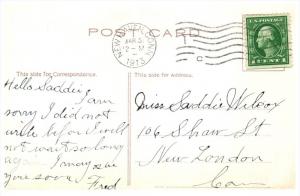 POST CARD
NEW HAVEN, CONN.
MAR 3
12 - M
1913
U.S. POSTAGE
1 CENT 1
This side for Correspondence.
This side for Address.
Hello Saddie
I am
sorry I did not
write before I will
not wait so long
again. I may see
you soon. Fred
Miss Saddie Wilcox
106 Shaw St
New London
Conn